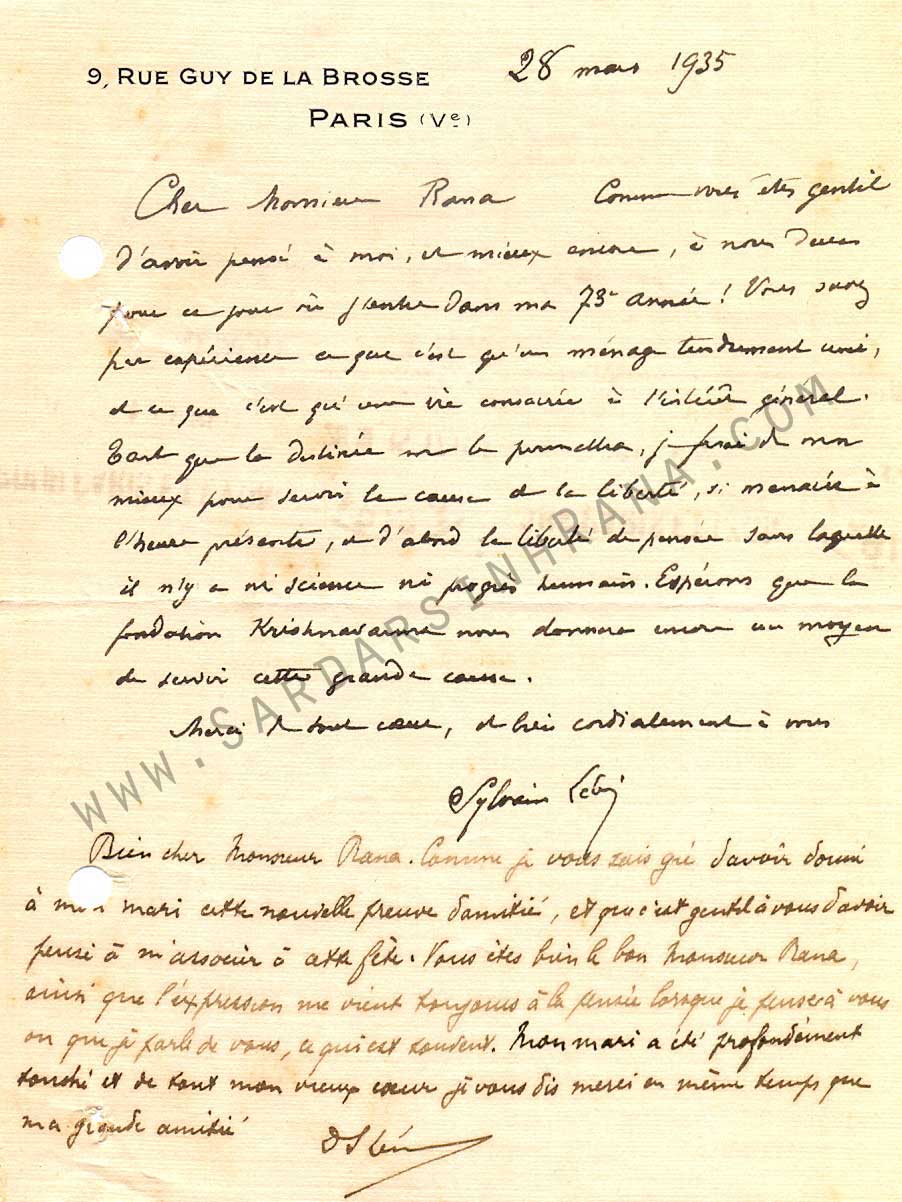 9, RUE GUY DE LA BROSSE
PARIS (Ve)
28 mars 1935
Cher Monsieur Rana Comme vous êtes gentil
d'avoir pensé à moi, et mieux encore, à nous deux
pour ce jour où j'entre dans ma 73e année ! Vous savez
par expérience ce que c'est qu'un ménage tendrement uni,
et ce que c'est qu'une vie consacrée à l'intérêt général.
Tant que la destinée me le permettra, je ferai de mon
mieux pour servir la cause de la liberté, si menacée à
l'heure présente, et d'abord la liberté de pensée sans laquelle
il n'y a ni science ni progrès humain. Espérons que la
fondation Krishnavarma nous donnera encore un moyen
de servir cette grande cause.
Merci de tout cœur, et bien cordialement à vous
Sylvain Lévi
Bien cher Monsieur Rana. Comme je vous sais gré d'avoir donné
à mon mari cette nouvelle preuve d'amitié, et que c'est gentil à vous d'avoir
pensé à m'associer à cette fête. Vous êtes bien le bon Monsieur Rana,
ainsi que l'expression me vient toujours à la pensée lorsque je pense à vous
ou que je parle de vous, ce qui est souvent. Mon mari a été profondément
touché et de tout mon vieux cœur je vous dis merci en même temps que
ma grande amitié
D S Lévi
WWW.SARDARSINHRANA.COM